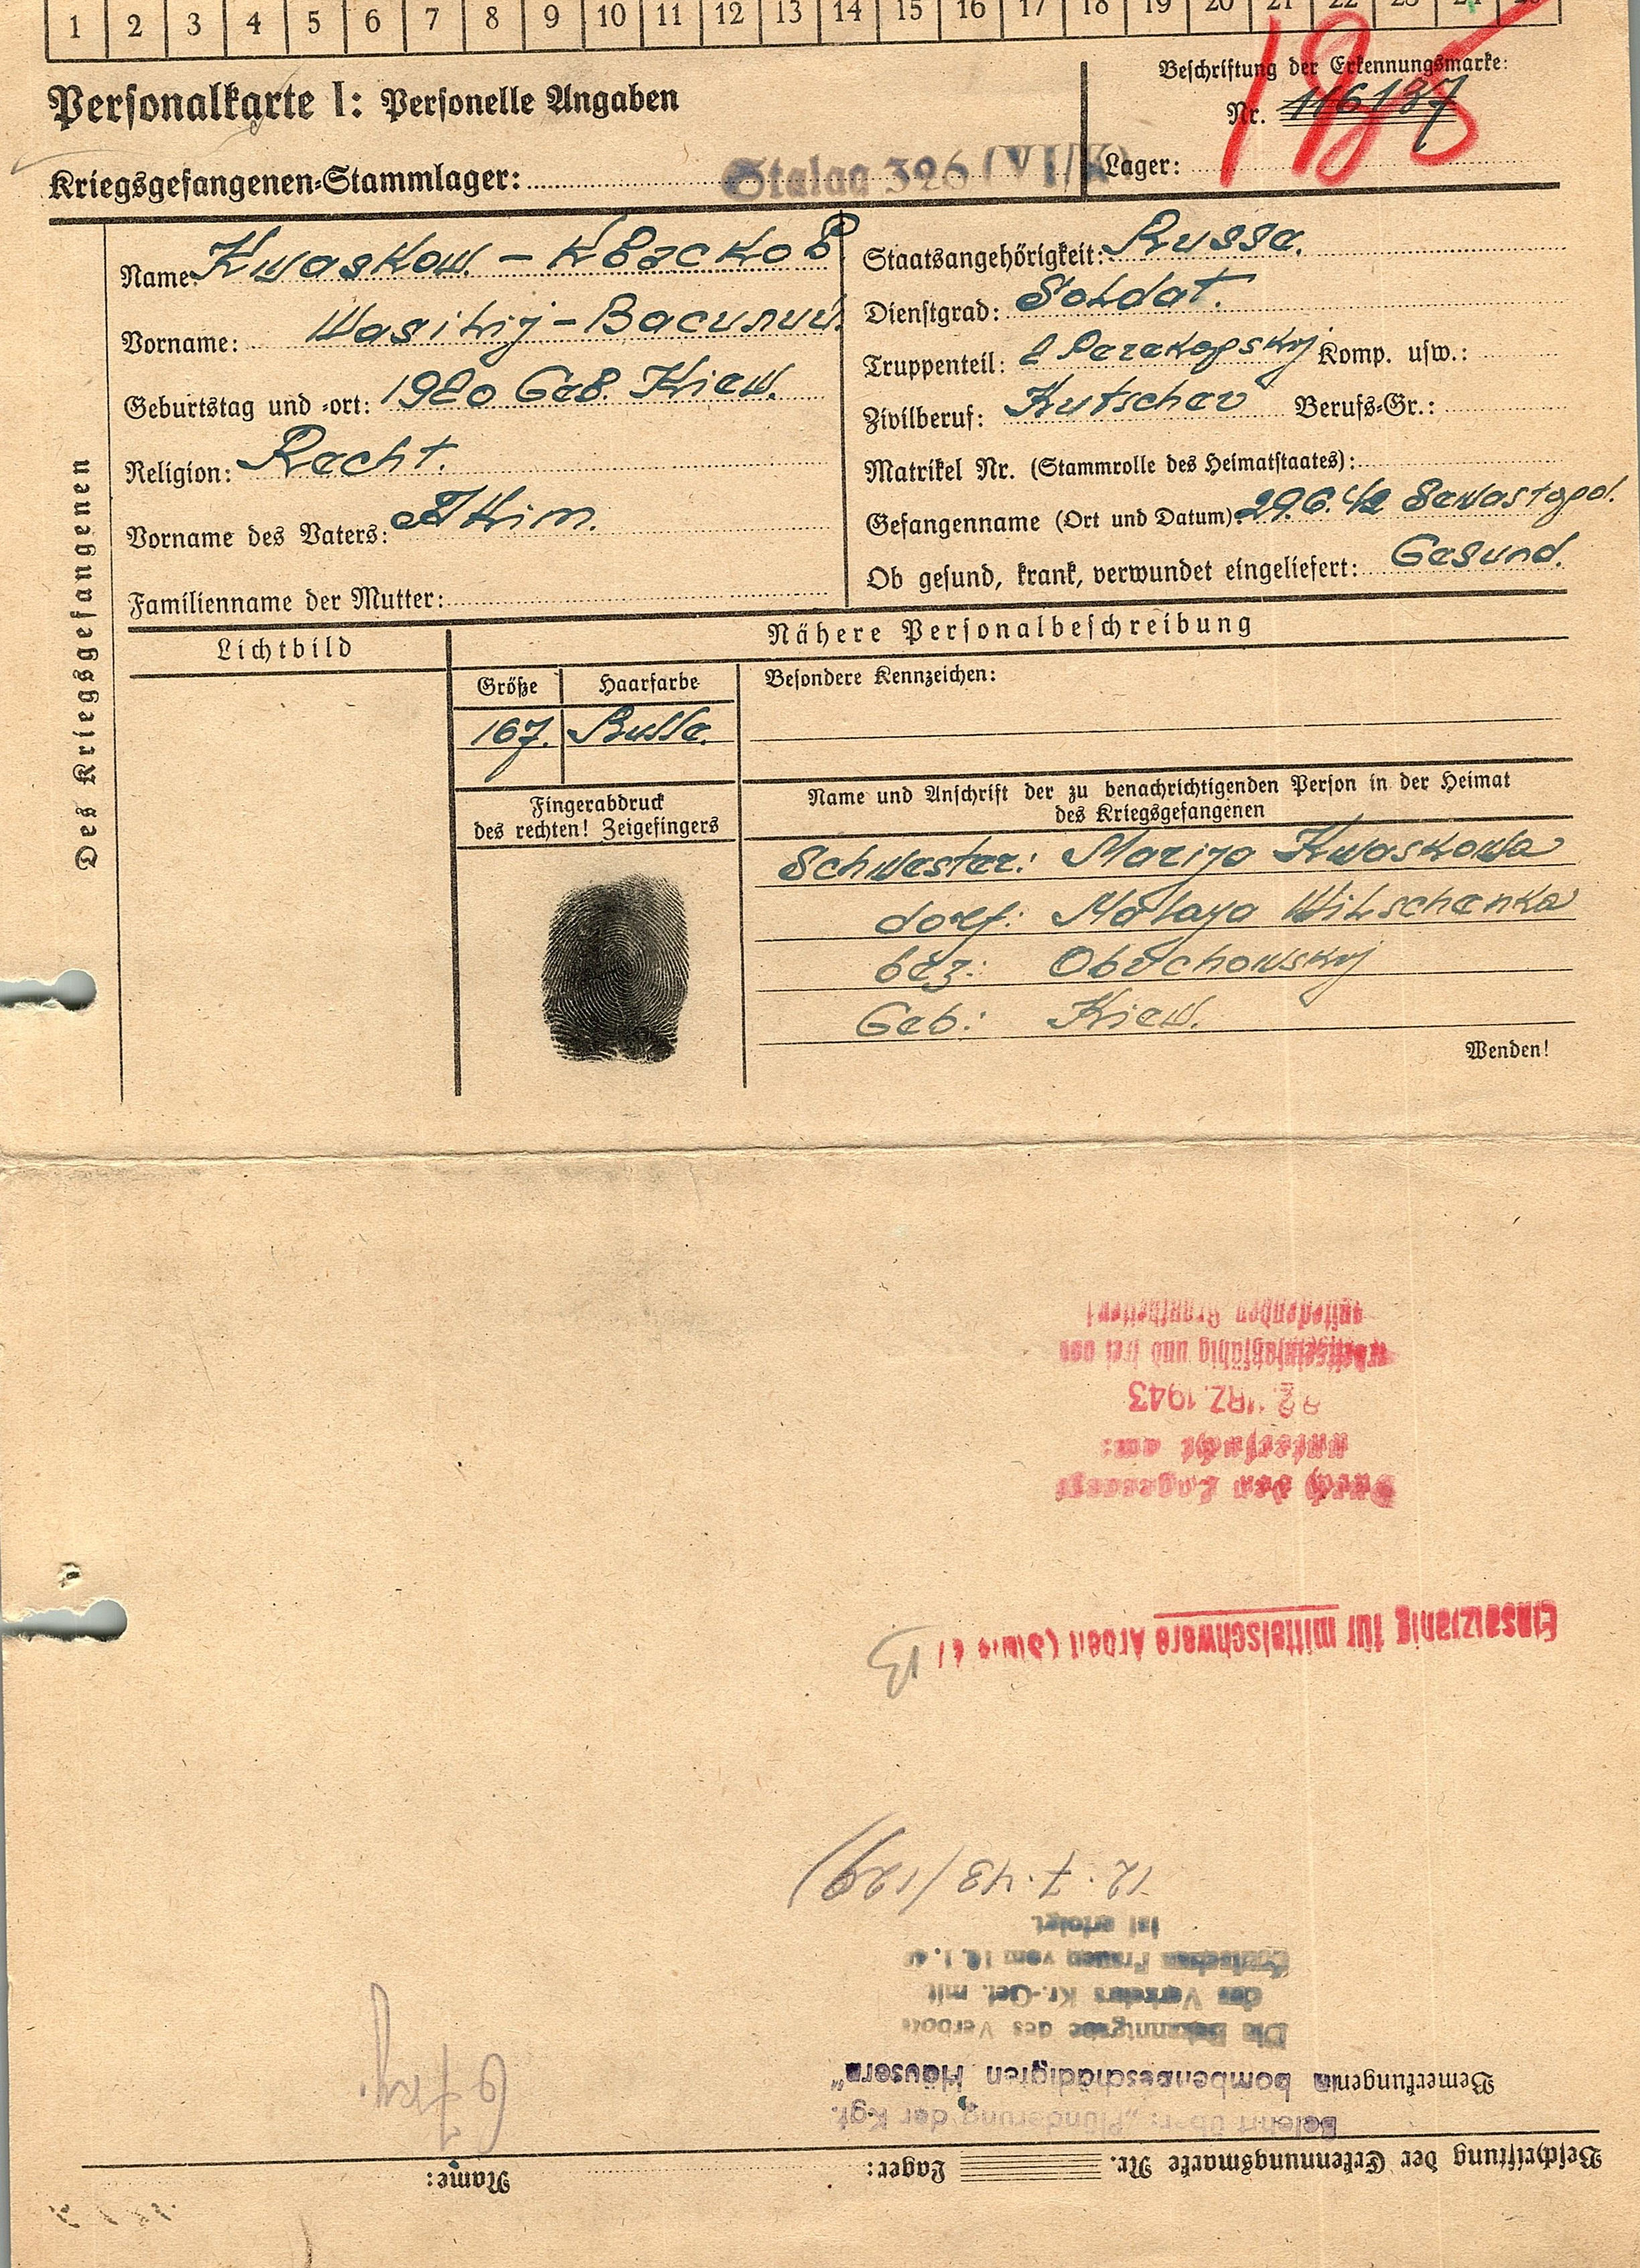 1 2 3 4 5 6 7 8 9 10 11 12 13 14 15 16 17 18 19 20 21 22 23 24 25
Personalkarte I: Personelle Angaben
Beschriftung der Erkennungsmarke:
Nr. 116137
Kriegsgefangenen-Stammlager: Stalag 326 (VI/K)
Lager:
Des Kriegsgefangenen
Name: Kwaskow. - Квасков
Vorname: Wasilij - Василий.
Geburtstag und -ort: 1920 Geb. Kiew.
Religion: Recht.
Vorname des Vaters: Akim.
Familienname der Mutter:
Staatsangehörigkeit: Russe.
Dienstgrad: Soldat.
Truppenteil: 2 Perekopskij Komp. usw.:
Zivilberuf: Kutscher Berufs-Gr.:
Matrikel Nr. (Stammrolle des Heimatstaates):
Gefangenname (Ort und Datum): 29.6.42 Sewastopol.
Ob gesund, krank, verwundet eingeliefert: Gesund.
Lichtbild
Nähere Personalbeschreibung
Größe Haarfarbe
167. Russe.
Besondere Kennzeichen:
Fingerabdruck
des rechten! Zeigefingers
Name und Anschrift der zu benachrichtigenden Person in der Heimat
des Kriegsgefangenen
Schwester: Marija Kwaskowa
dorf: Malaja Wilschenka
bez: Obuchowskij
Geb: Kiew.
Wenden!
Beschriftung der Erkennungsmarke Nr. Lager: Name:
Belehrt über: „Plünderung der Kgf.
Bemerkungen: in bombengeschädigten Häusern"
Die Bekanntgabe des Verbots
des Verkehrs Kr.-Gef. mit
deutschen Frauen vom
ist erfolgt
12.7.43 (129)
67 kg.
Einsatzfähig für mittelschwere Arbeit
B
Durch den Lagerarzt
untersucht am:
MRZ. 1943
und frei von
ansteckenden Krankheiten!